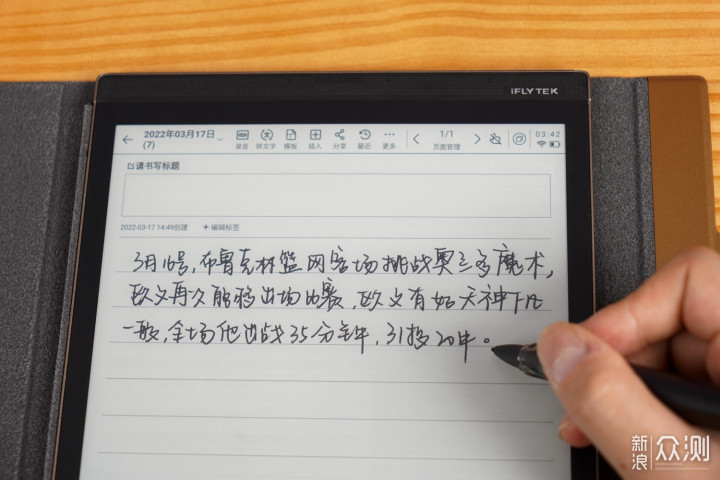 iFLYTEK
2022年03月17日
(7)
录音 转文字 模板 插入 分享 最近 更多
1/1
页面管理
03:42
请书写标题
2022-03-17 14:49创建 +编辑标签
3月16号,布鲁克林篮网客场挑战奥兰多魔术,
欧文再次能够出场比赛,欧文有如天神下凡
一般,全场他出战35分钟,31投20中。
新浪 众测